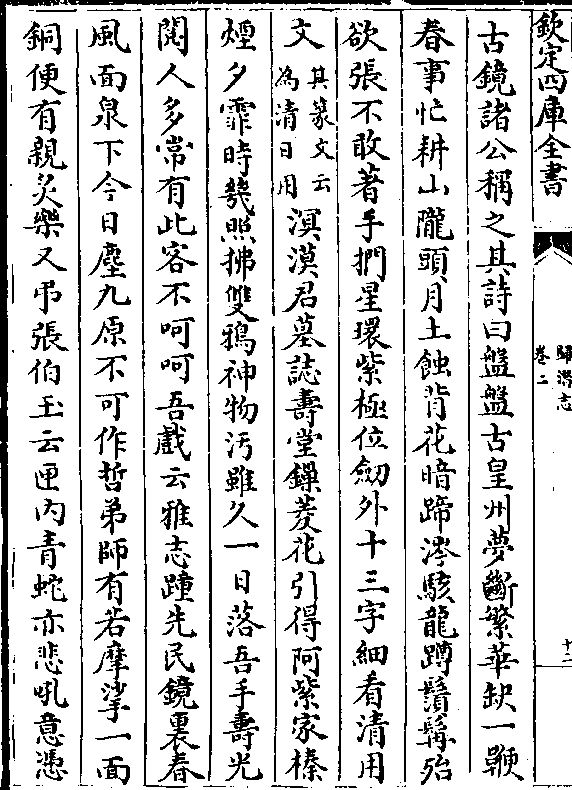 欽定四庫全書
歸潛志
卷二
十二
古鏡諸公稱之其詩曰盤盤古皇州夢斷繁華缺一鞭
春事忙耕山隴頭月土蝕背花暗蹄涔駭龍蹲鬚髯殆
欲張不敢著手捫星環紫極位劒外十三字細看清用
文其篆文云為清日用溟漠君墓誌壽堂鏁菱花引得阿紫家榛
煙夕霏時幾照拂雙鴉神物汚雖久一日落吾手壽光
閱人多常有此客不呵呵吾戲云雅志踵先民鏡裏春
風面泉下今日塵九原不可作哲弟師有若摩挲一面
銅便有親炙樂又弔張伯玉云匣内青蛇亦悲吼意憑